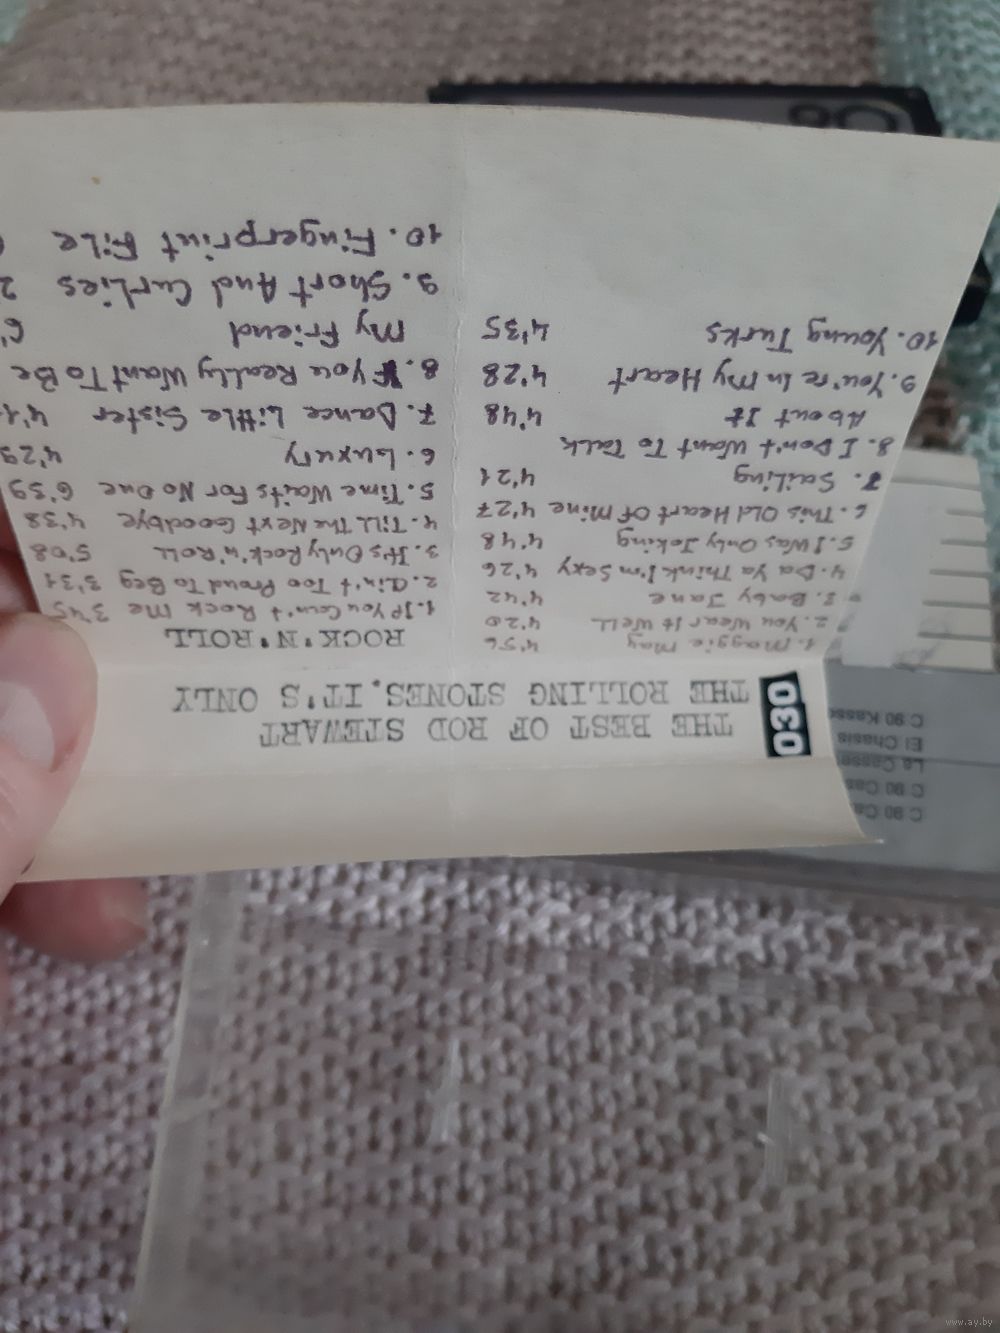 030
THE BEST OF ROD STEWART
THE ROLLING STONES. IT'S ONLY
ROCK'N'ROLL
1. Maggie May 4'56
2. You Wear It Well 4'20
3. Baby Jane 4'42
4. Da Ya Think I'm Sexy 4'26
5. I Was Only Joking 4'48
6. This Old Heart Of Mine 4'27
7. Sailing 4'21
8. I Don't Want To Talk
About It 4'48
9. You're In My Heart 4'28
10. Young Turks 4'35
1. IF You Can't Rock Me 3'45
2. Ain't Too Proud To Beg 3'31
3. It's Only Rock'n'Roll 5'08
4. Till The Next Goodbye 4'38
5. Time Waits For No One 6'39
6. Luxury 4'29
7. Dance Little Sister 4'1
8. If You Really Want To Be
My Friend 6'
9. Short And Curlies 2
10. Fingerprint File
C 90 Ca
C 90 Cas
La Casse
El Chasis
C 90 Kasse
www.ay.by